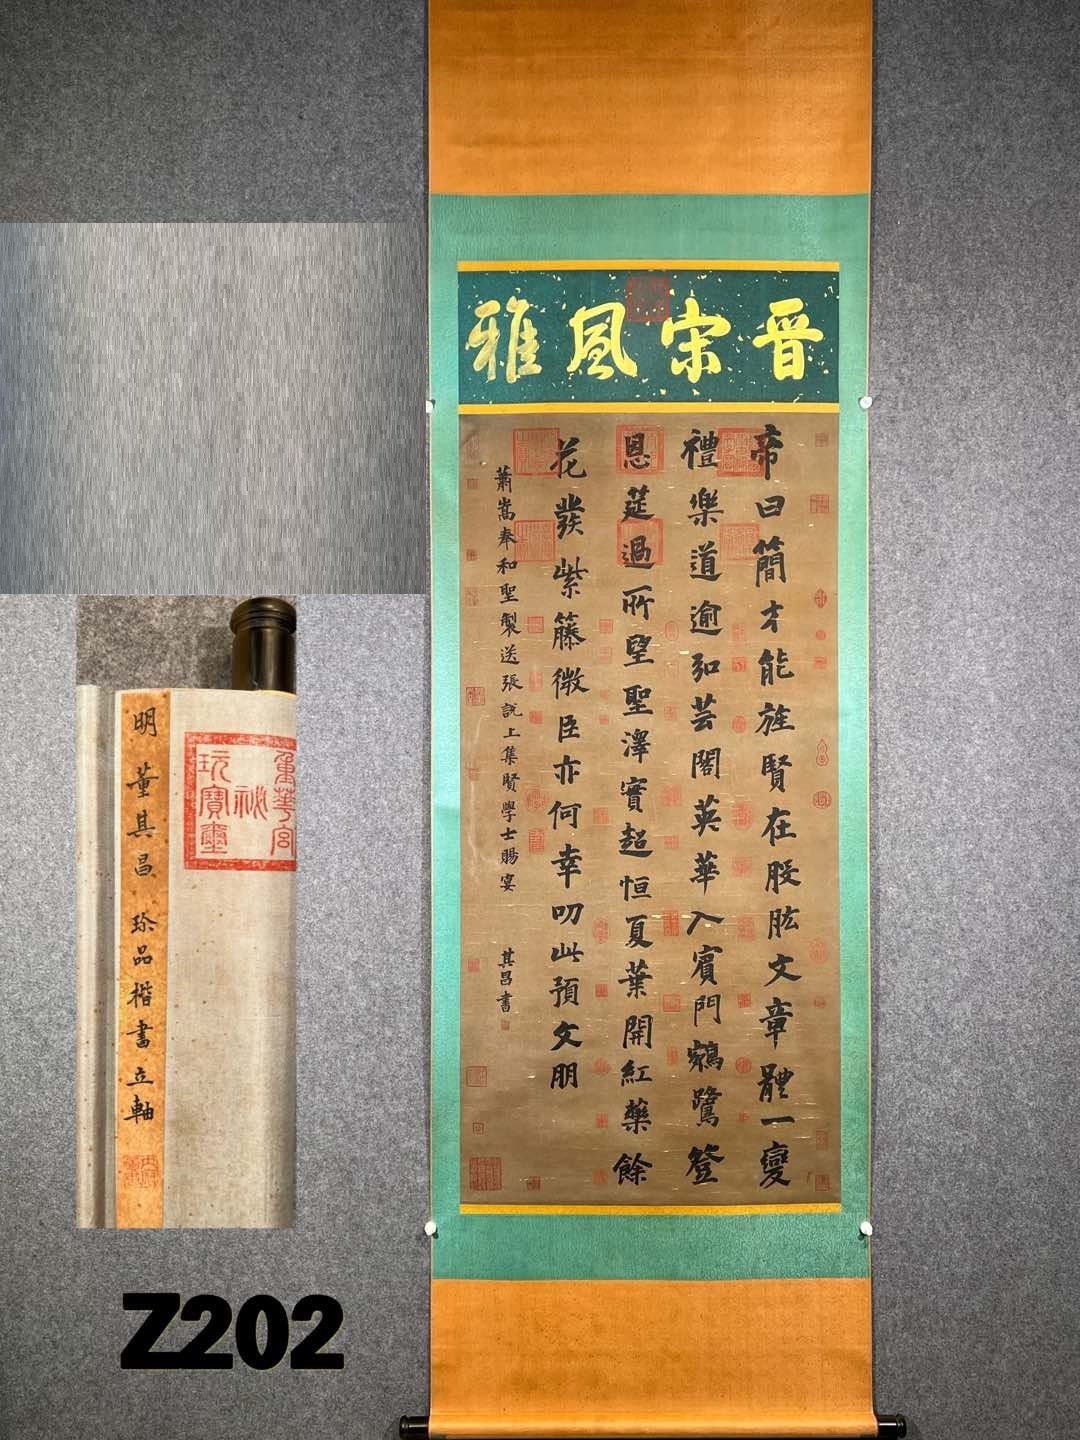 晋宋風雅
帝曰簡才能旌賢在股肱文章體一變
禮樂道逾弘芸閣英華入賓門鵷鷺登
恩筵過所望聖澤實超恒夏葉開紅藥餘
花發紫藤微臣亦何幸叨此預文朋
蕭嵩奉和聖製送張說上集賢學士賜宴
其昌書
明 董其昌 珍品楷書立軸
重華宮
祕
玩寶璽
Z202